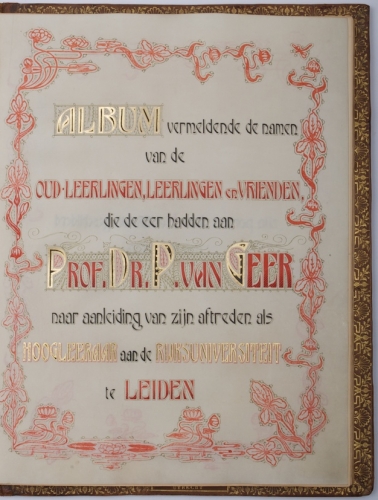 ALBUM vermeldende de namen
van de
OUD-LEERLINGEN, LEERLINGEN en VRIENDEN,
die de eer hadden aan
PROF. DR. P. VAN GEER
naar aanleiding van zijn aftreden als
HOOGLEERAAR aan de RIJKSUNIVERSITEIT
te LEIDEN